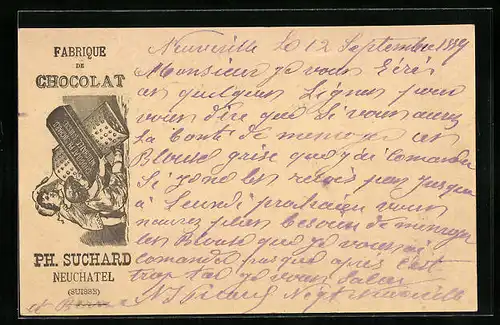 FABRIQUE
DE
CHOCOLAT
PH. SUCHARD
NEUCHATEL
(SUISSE)
Neuveville le 12 Septembre 1889
Monsieur je vous Ecris
ces quelques Lignes pour
vous dire que Si vous aurez
La bonté de menvoyer ces
Blouse grise que j'ai Comandé
Si je ne les recois pas jusqua
à Lundi prochain vous
naurez plus besoin de menvoyer
les Blouse que je vous ai
Comandé pasque après C'est
trop tard je vous Salue
Neuveville